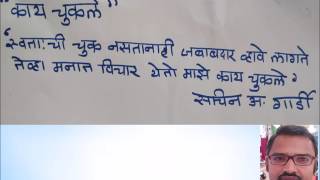 "काय चुकले"
"स्वतःची चुक नसतानाही जबाबदार व्हावे लागते
तेव्हा मनात विचार येतो माझे काय चुकले"
सचिन अ. गार्डी